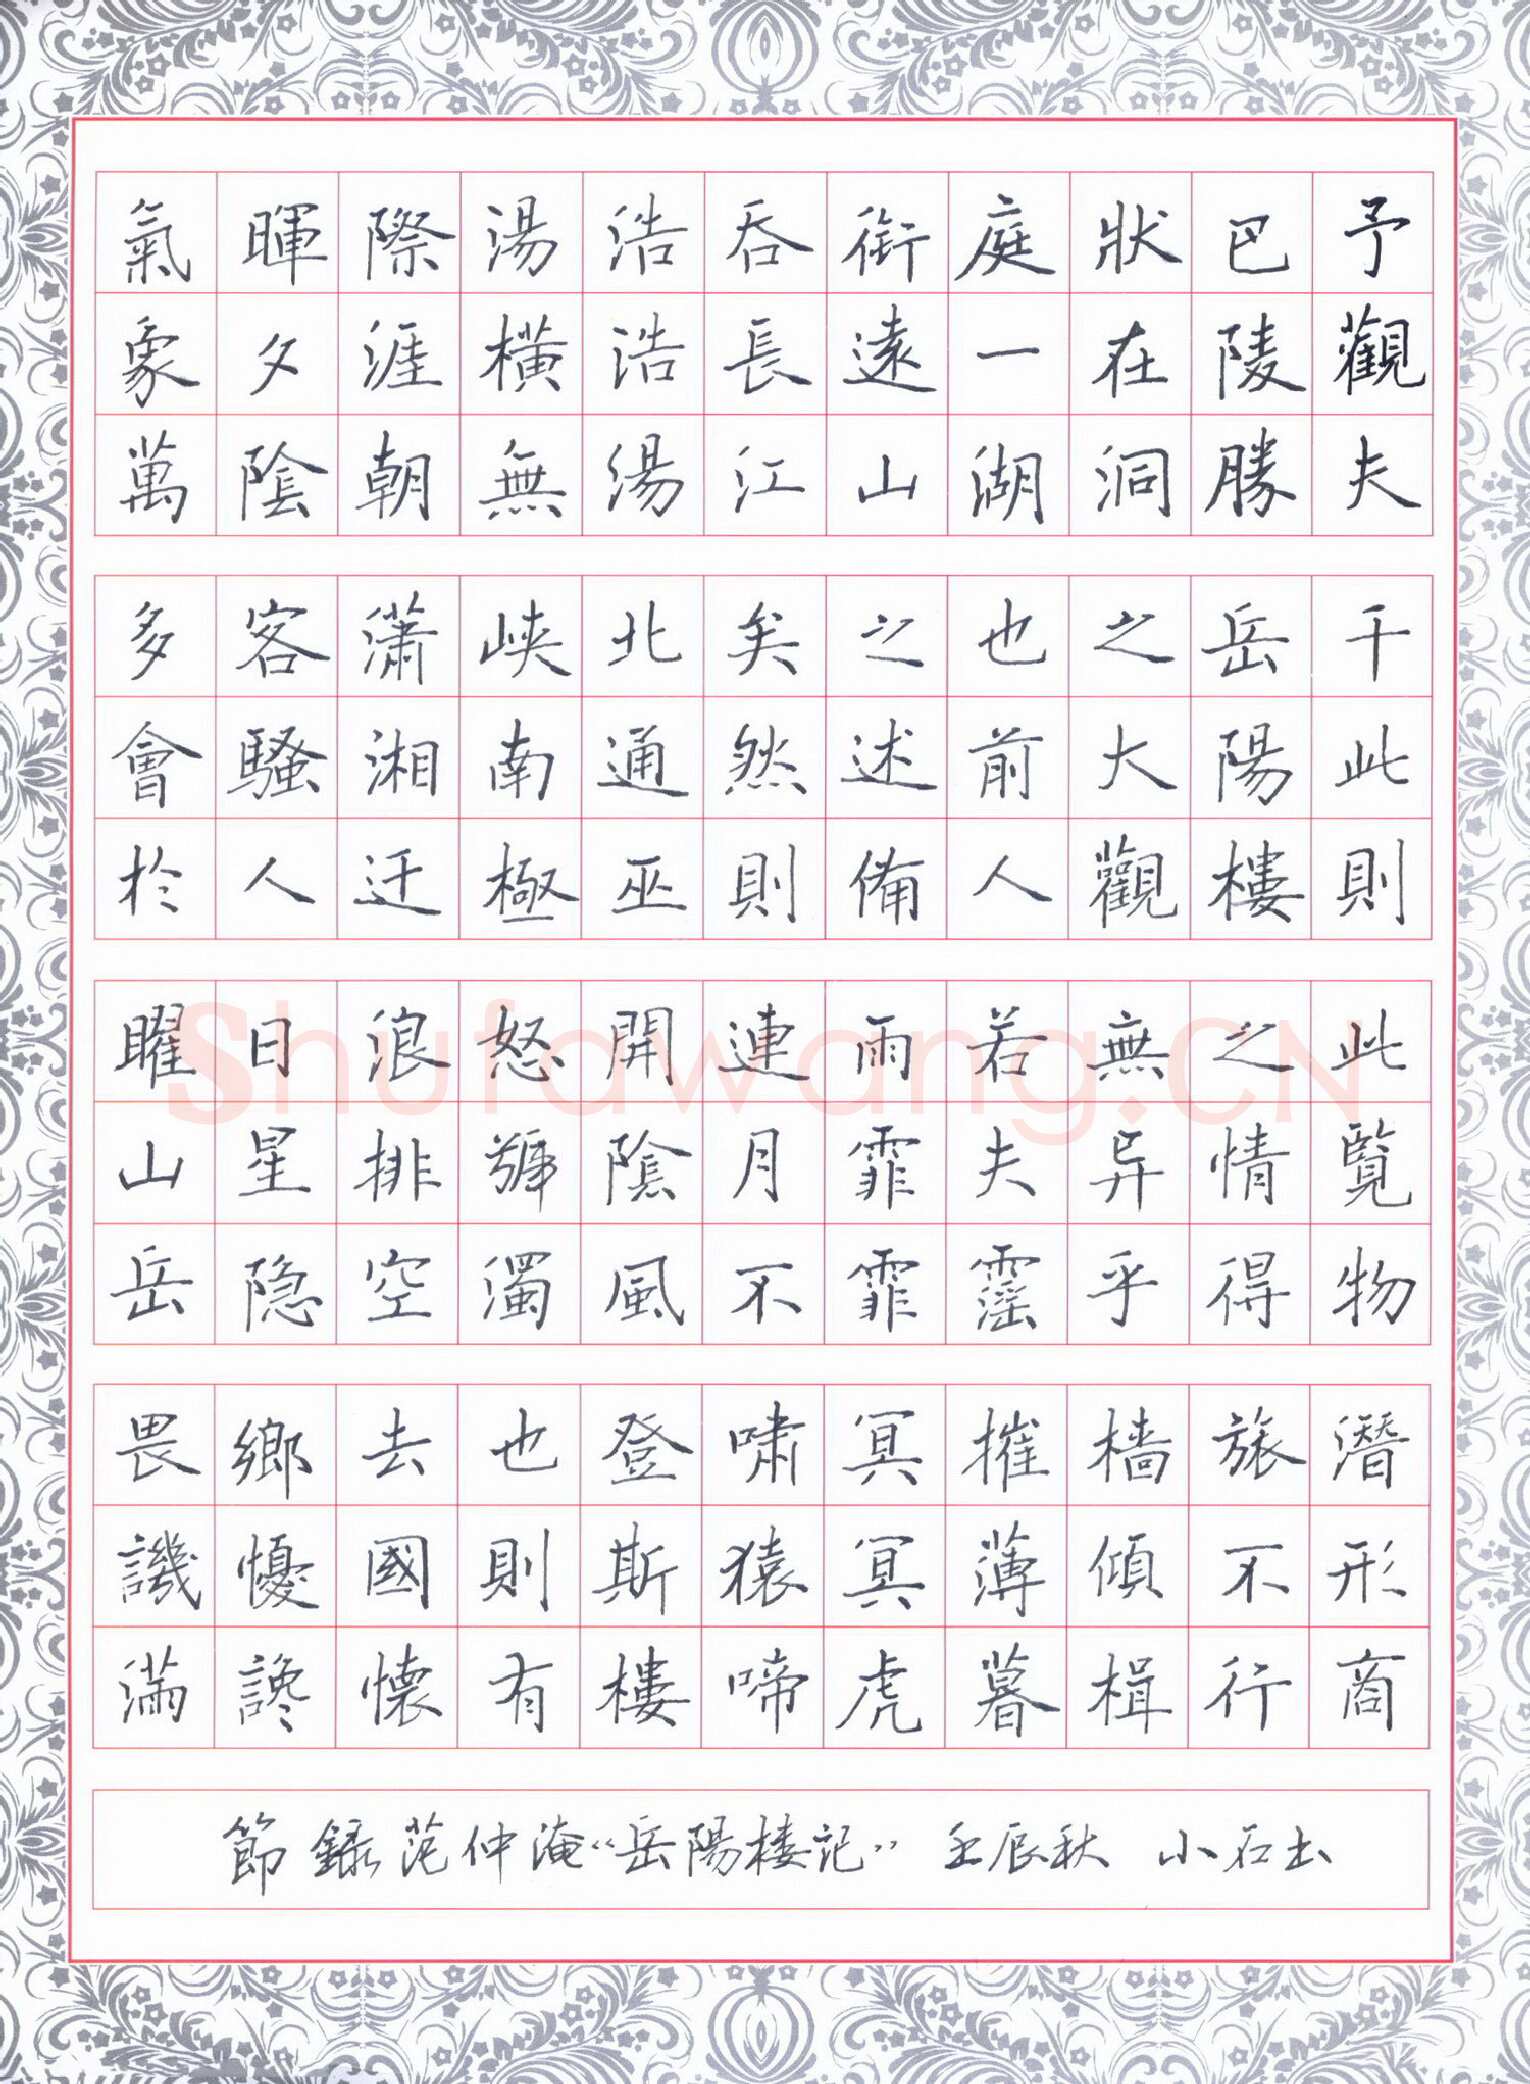 予觀夫
巴陵勝
狀在洞
庭一湖
銜遠山
吞長江
浩浩湯
湯橫無
際涯朝
暉夕陰
氣象萬
千此則
岳陽樓
之大觀
也前人
之述備
矣然則
北通巫
峽南極
瀟湘迁
客騷人
多會於
此覽物
之情得
無异乎
若夫霪
雨霏霏
連月不
開陰風
怒號濁
浪排空
日星隐
曜山岳
潛形商
旅不行
檣傾楫
摧薄暮
冥冥虎
啸猿啼
登斯樓
也則有
去國懐
鄉懮讒
畏譏滿
節錄范仲淹“岳陽楼記” 壬辰秋 小石土
Shufawang.CN